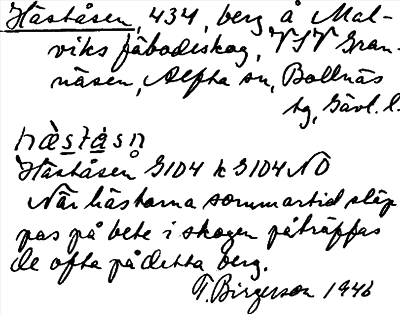 Häståsen, 434, berg å Mal-
viks fäbodeskog, VSV Gran-
näsen, Alfta sn, Bollnäs
tg, Gävl. l.
hàstasn
Häståsen G104 k G104 NO
När hästarna sommartid släp
pas på bete i skogen påträffas
de ofta på detta berg.
T. Birgerson 1946